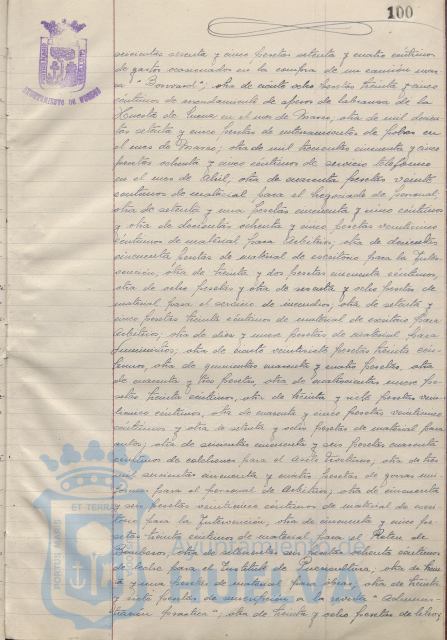 100
AYUNTAMIENTO DE HUELVA
seiscientas sesenta y cinco pesetas setenta y cuatro céntimos
de gastos ocasionados en la compra de un camión marca
otra de ciento ocho pesetas treinta y cinco
céntimos de arrendamiento de aperos de labranza de la
Huerta de Mena en el mes de Marzo, otra de mil
setenta y cinco pesetas de internamientos de pobres en
el mes de Marzo; otra de mil trescientas cincuenta y cinco
pesetas ochenta y cinco céntimos de servicio telefónico
en el mes de Abril, otra de cuarenta pesetas veinte
céntimos de material para el Negociado de personal;
otra de setenta y una pesetas cincuenta y cinco céntimos
y otra de doscientas ochenta y cinco pesetas veinticinco
céntimos de material para Arbitrios; otra de doscientas
cincuenta pesetas de material de escritorio para la Inter-
vención; otra de treinta y dos pesetas cincuenta céntimos,
otra de ocho pesetas y otra de sesenta y ocho pesetas de
material para el servicio de incendios; otra de setenta y
cinco pesetas treinta céntimos de material de escritorio para
Arbitrios; otra de diez y nueve pesetas de material para
Suministros; otra de ciento veintisiete pesetas treinta cén-
timos, otra de quinientas cuarenta y cuatro pesetas, otra
de cuarenta y tres pesetas, otra de cuatrocientas nueve pe-
setas treinta céntimos, otra de treinta y siete pesetas vein-
ticinco céntimos, otra de cuarenta y cinco pesetas veinticinco
céntimos y otra de setenta y ocho pesetas de material para
autos; otra de seiscientas cincuenta y seis pesetas cuarenta
céntimos de colchones para el Asilo Nocturno; otra de tres
mil seiscientas cincuenta y cuatro pesetas de gorras uni-
forme para el personal de Arbitrios; otra de cincuenta
y seis pesetas veinticinco céntimos de material de escri-
torio para la Intervención, otra de cincuenta y cinco pe-
setas treinta céntimos de material para el Retén de
Bomberos, otra de setecientas seis pesetas ochenta céntimos
de leche para el Instituto de Puericultura; otra de trein-
ta y una pesetas de material para obras, otra de treinta
y siete pesetas de suscripción a la revista "Adminis-
tración práctica"; otra de treinta y ocho pesetas de
PORTUS MARIS
ET TERRAE
Ayuntamiento de